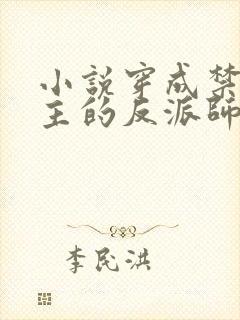 小說穿成禁
主的反派師
李民洪